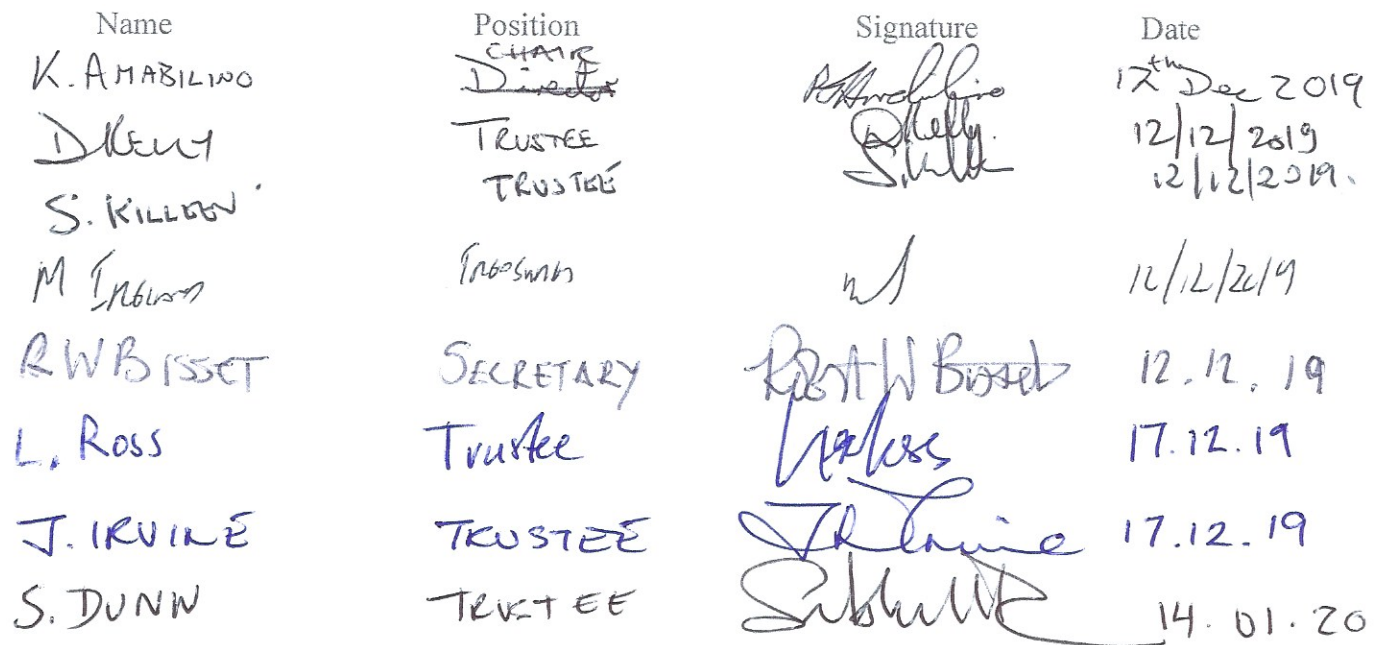 Name Position Signature Date
CHAIR
K. AMABILINO Director 12th Dec 2019
D KELLY TRUSTEE DKelly. 12/12/2019
S. KILLEEN TRUSTEE 12/12/2019.
M 12/12/2019
R W BISSET SECRETARY Robert W Bisset 12.12.19
L. Ross Trustee 17.12.19
J. IRVINE TRUSTEE 17.12.19
S. DUNN TRUSTEE 14.01.20